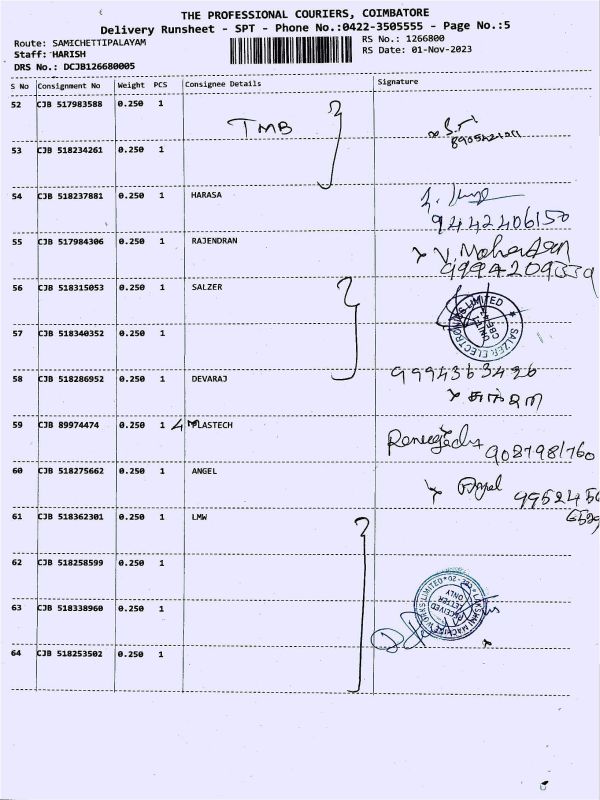 THE PROFESSIONAL COURIERS, COIMBATORE
Delivery Runsheet - SPT - Phone No.:0422-3505555 - Page No.:5
Route: SAMICHETTIPALAYAM
Staff: HARISH
DRS No.: DCJB126680005
RS No.: 1266800
RS Date: 01-Nov-2023
S No Consignment No Weight PCS Consignee Details Signature
52 CJB 517983588 0.250 1
TMB
53 CJB 518234261 0.250 1
54 CJB 518237881 0.250 1 HARASA
9442406150
55 CJB 517984306 0.250 1 RAJENDRAN
V. Mohan
56 CJB 518315053 0.250 1 SALZER
SALZER ELECTRONICS LIMITED
57 CJB 518340352 0.250 1
58 CJB 518286952 0.250 1 DEVARAJ
9994363426
59 CJB 89974474 0.250 1 LASTECH
9087981760
60 CJB 518275662 0.250 1 ANGEL
61 CJB 518362301 0.250 1 LMW
62 CJB 518258599 0.250 1
LAKSHMI MACHINE WORKS LIMITED
RECEIVED
LETTER
ONLY
63 CJB 518338960 0.250 1
64 CJB 518253502 0.250 1